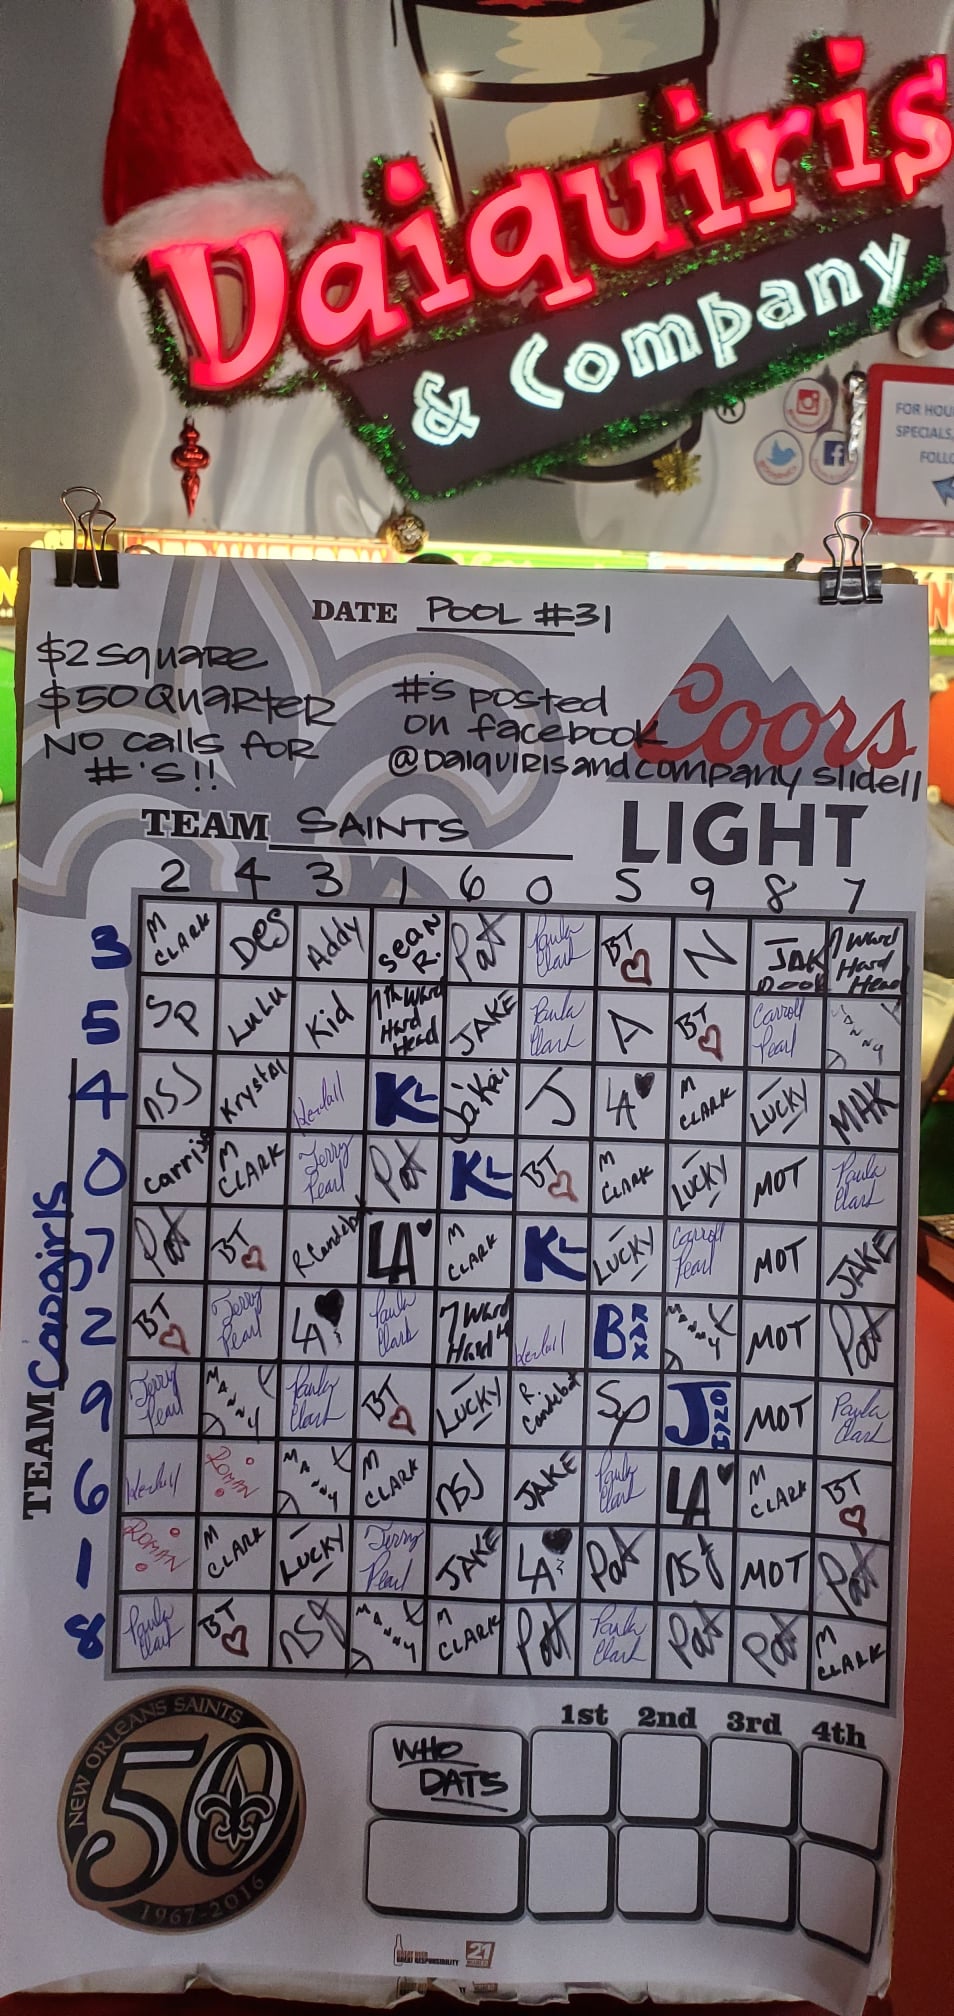 Daiquiris
& Company
®
FOR HOU
SPECIALS,
FOLLO
DATE POOL #31
$2 square
$50 QUARTER
NO calls for
#'s!!
#'s posted
on facebook
@DAIQUIRISandcompany slidell
Coors
LIGHT
TEAM SAINTS
2 4 3 1 6 0 5 9 8 7
3 M CLARK Des Addy Sean R. Pat Paula Clark BT N JAK 7 Ward Hard Head
5 SP LuLu Kid 7th Ward Hard Head JAKE Paula Clark A BT Carroll Pearl Manny
4 NSJ Krystal Kendall KL Jakai J LA M CLARK LUCKY MHK
0 Carris M CLARK Terry Pearl Pat KL BT M CLARK LUCKY MOT Paula Clark
7 Pat BT LA M CLARK KL LUCKY Carroll Pearl MOT JAKE
2 BT Terry Pearl LA Paula Clark 7 Ward Hard H Kendall BRAXX Manny MOT Pat
9 Terry Pearl Manny Paula Clark BT LUCKY R. SP J MOT Paula Clark
6 Kendall ROMAN Manny M CLARK NSJ JAKE Paula Clark LA M CLARK BT
1 ROMAN M CLARK LUCKY Terry Pearl JAKE LA Pat NSJ MOT Pat
8 Paula Clark BT NSJ Manny M CLARK Pat Paula Clark Pat Pat M CLARK
TEAM Cowgirls
1st 2nd 3rd 4th
WHO
DATS
NEW ORLEANS SAINTS
50
1967-2016
GREAT BEER
GREAT RESPONSIBILITY
21